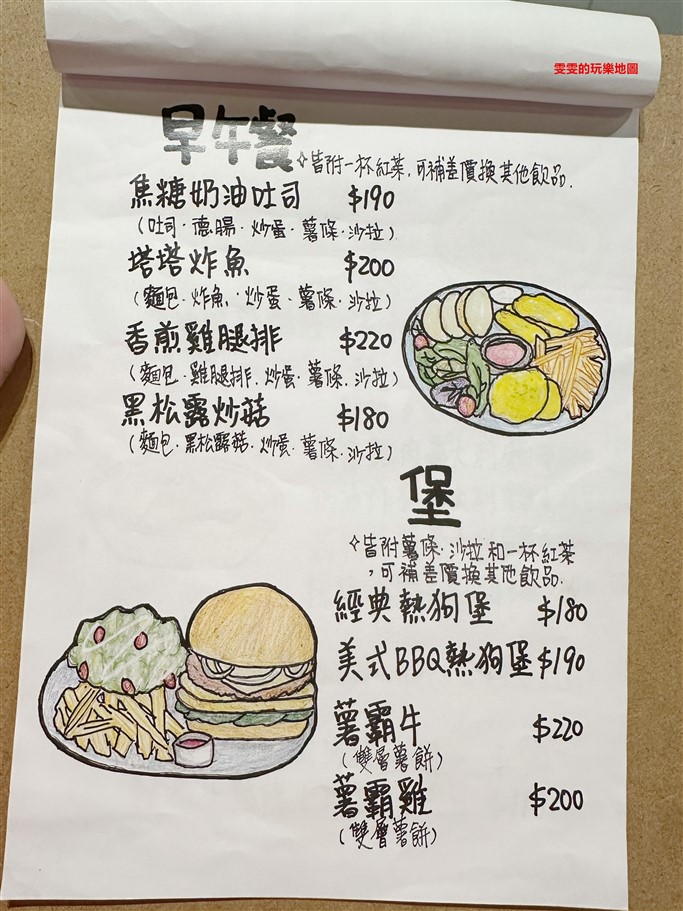 雯雯的玩樂地圖
早午餐
✧皆附一杯紅茶,可補差價換其他飲品.
焦糖奶油吐司 $190
(吐司·德腸·炒蛋·薯條·沙拉)
塔塔炸魚 $200
(麵包·炸魚·炒蛋·薯條·沙拉)
香煎雞腿排 $220
(麵包·雞腿排.炒蛋·薯條.沙拉)
黑松露炒菇 $180
(麵包·黑松露菇·炒蛋·薯條·沙拉)
堡
✧皆附薯條·沙拉和一杯紅茶
,可補差價換其他飲品.
經典熱狗堡 $180
美式BBQ熱狗堡 $190
薯霸牛 $220
(雙層薯餅)
薯霸雞 $200
(雙層薯餅)